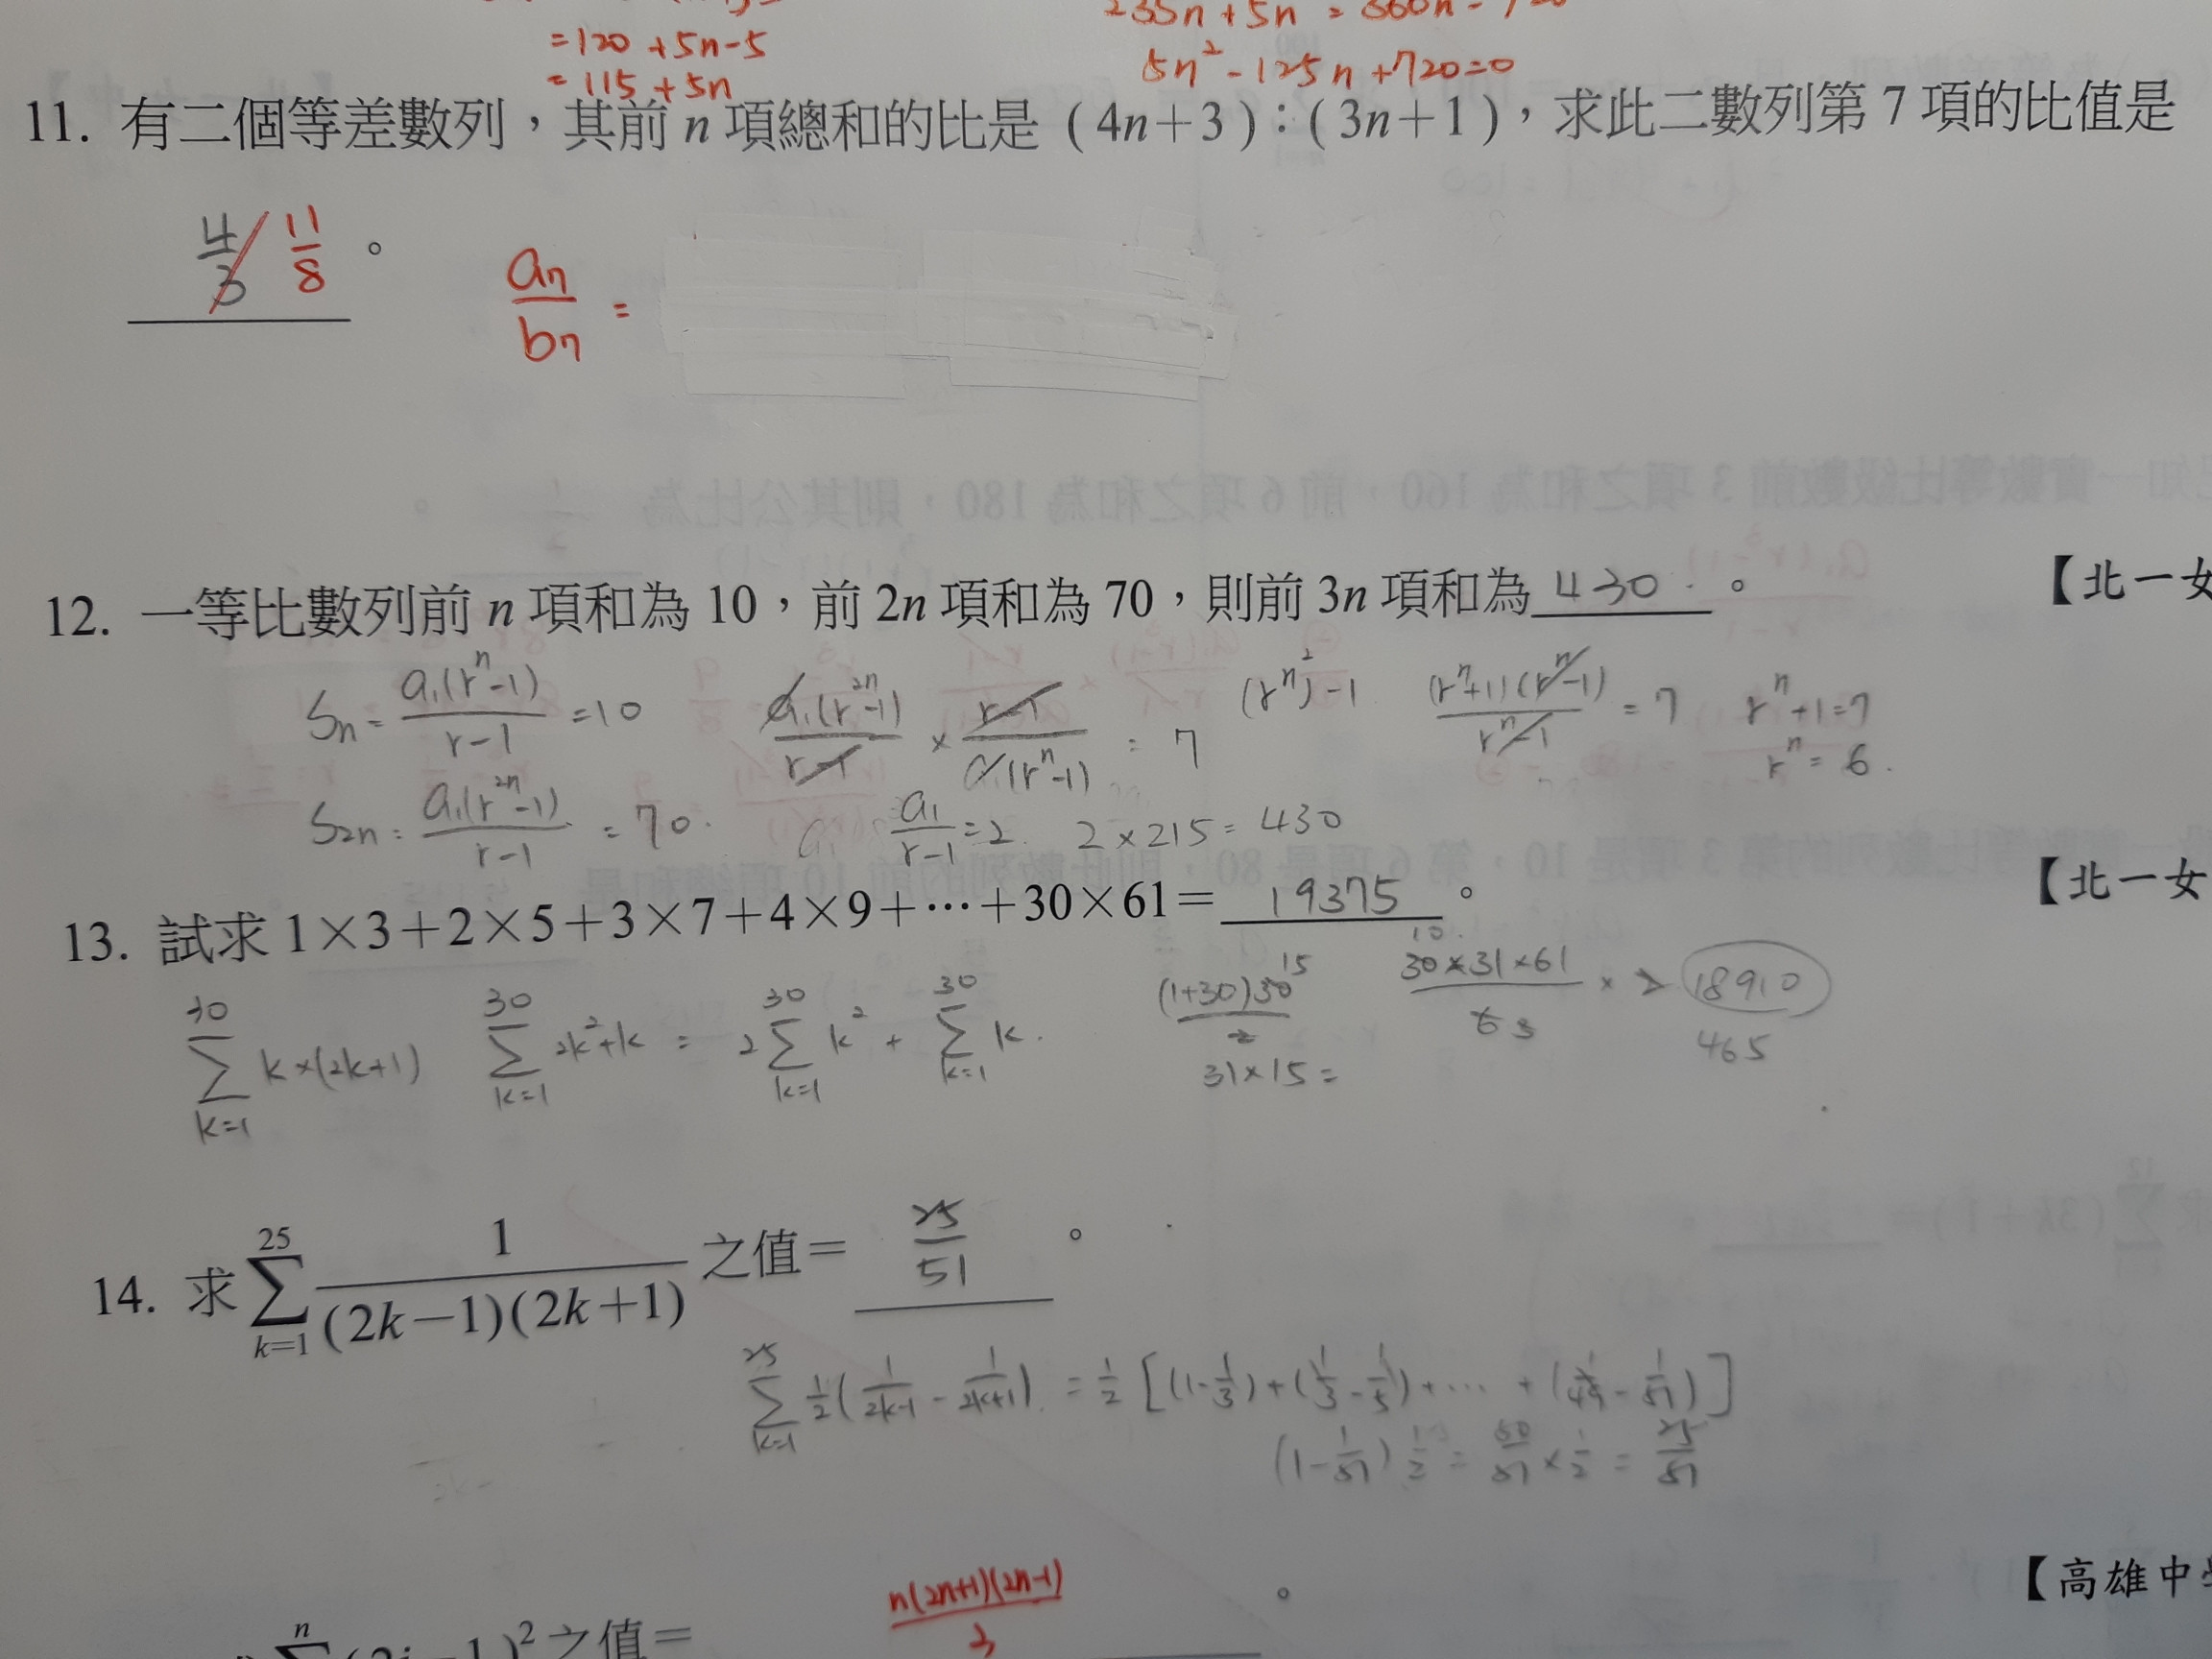 =120+5n-5
=115+5n
5n²-125n+720=0
11. 有二個等差數列，其前 n 項總和的比是（4n+3）:（3n+1），求此二數列第 7 項的比值是
4/3 11/8 。
a₇/b₇ =
12. 一等比數列前 n 項和為 10，前 2n 項和為 70，則前 3n 項和為 430 。
【北一女
Sn = a₁(rⁿ-1)/(r-1) = 10
a₁(r²ⁿ-1)/(r-1) × (r-1)/a₁(rⁿ-1) = 7
(rⁿ)²-1
(rⁿ+1)(rⁿ-1)/(rⁿ-1) = 7
rⁿ+1=7
rⁿ=6.
S₂n = a₁(r²ⁿ-1)/(r-1) = 70.
a₁/(r-1) = 2. 2×215=430
13. 試求 1×3+2×5+3×7+4×9+⋯+30×61= 19375 。
【北一女
30 Σ k=1 k×(2k+1)
30 Σ k=1 2k²+k = 2 30 Σ k=1 k² + 30 Σ k=1 k.
(1+30)30/2 15
31×15=
30×31×61/6 ×2 10 3
18910
465
14. 求 25 Σ k=1 1/(2k-1)(2k+1) 之值= 25/51 。
25 Σ k=1 1/2(1/2k-1 - 1/2k+1) = 1/2[(1-1/3)+(1/3-1/5)+⋯+(1/49-1/51)]
(1-1/51)1/2 = 50/51×1/2 = 25/51
【高雄中
n(2n+1)(2n-1)/3 。
之值=